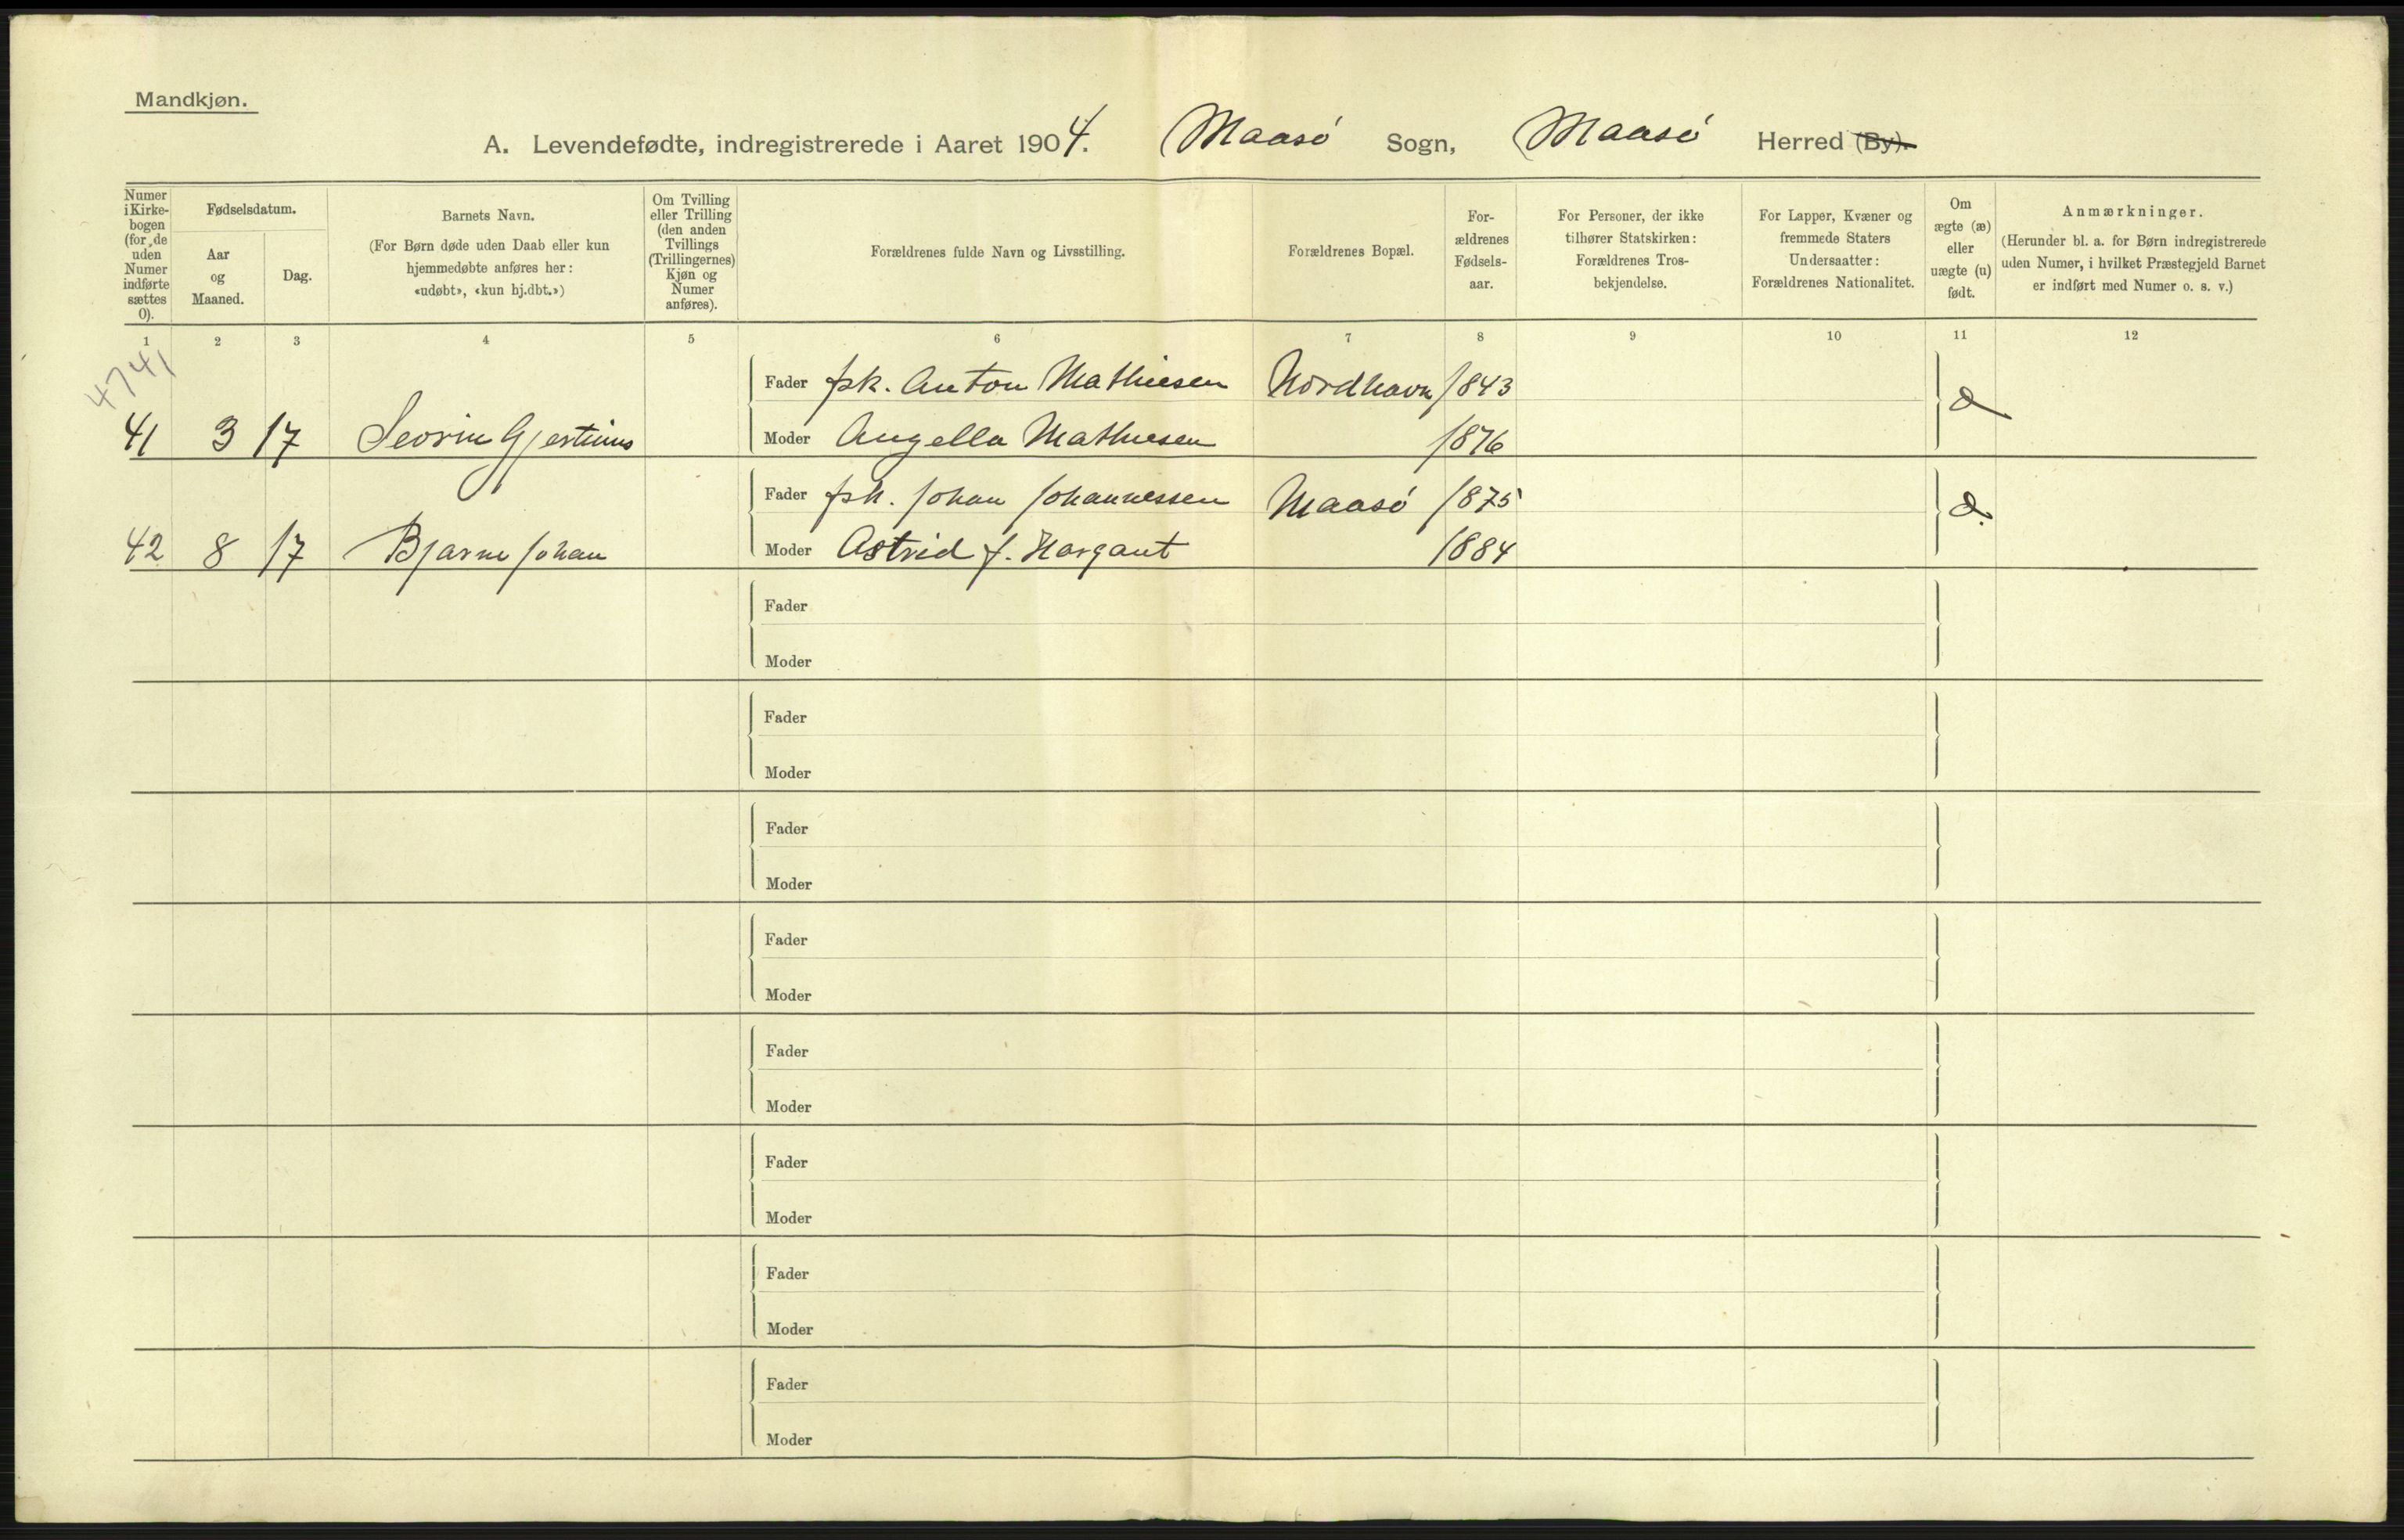 Mandkjøn.
A. Levendefødte, indregistrerede i Aaret 1904. Maasö Sogn, Maasö Herred (By).
Numer i Kirkebogen (for de uden Numer indførte sættes 0).
Fødselsdatum.
Aar og Maaned.
Dag.
Barnets Navn.
(For Børn døde uden Daab eller kun hjemmedøbte anføres her: «udøbt», «kun hj.dbt.»)
Om Tvilling eller Trilling (den anden Tvillings (Trillingernes) Kjøn og Numer anføres).
Forældrenes fulde Navn og Livsstilling.
Forældrenes Bopæl.
Forældrenes Fødselsaar.
For Personer, der ikke tilhører Statskirken: Forældrenes Trosbekjendelse.
For Lapper, Kvæner og fremmede Staters Undersaatter: Forældrenes Nationalitet.
Om ægte (æ) eller uægte (u) født.
Anmærkninger.
(Herunder bl. a. for Børn indregistrerede uden Numer, i hvilket Præstegjeld Barnet er indført med Numer o. s. v.)
1 2 3 4 5 6 7 8 9 10 11 12
4741
Fader fsk. Anton Mathiesen Nordhavn 1843 æ
41 3 17 Sevrin Gjertinius Moder Angella Mathiesen 1876
Fader fsk. Johan Johannessen Maasö 1875 æ
42 8 17 Bjarne Johan Moder Astrid f. Hargaut 1884
Fader
Moder
Fader
Moder
Fader
Moder
Fader
Moder
Fader
Moder
Fader
Moder
Fader
Moder
Fader
Moder